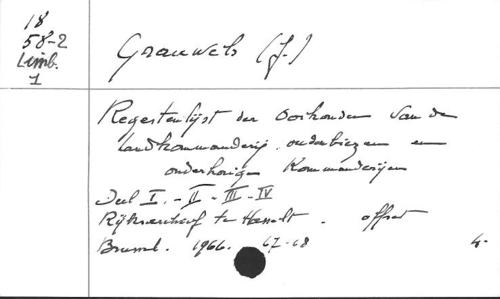 18
58-2
Limb.
1
Grauwels (J.)
Regestenlijst der Oorkonden van de
landkommanderij oudenbiezen en
onderhorige Kommanderijen
Deel I. - II - III - IV
Rijksarchief te Hasselt. offset
Brussel. 1966. 67-68 4.